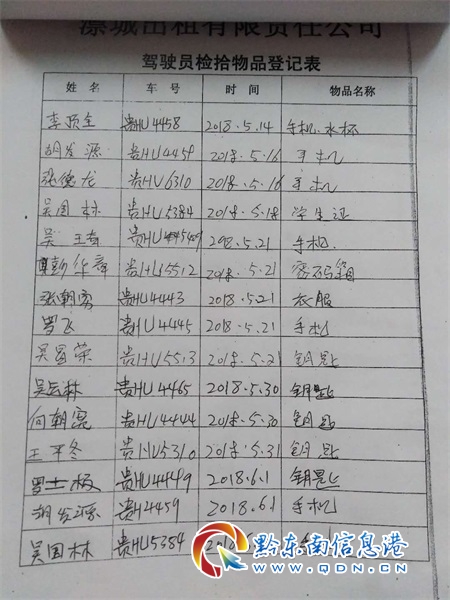 城出租有限责任公司
驾驶员检拾物品登记表
姓 名 车 号 时 间 物品名称
李顶全 贵HU4458 2018.5.14 手机.水杯
胡发源 贵HU4459 2018.5.16 手机
张德龙 贵HU6310 2018.5.16 手机
吴国林 贵HU5384 2018.5.18 学生证
吴 贵HU 5.21 手机
华章 贵HU5512 2018.5.21 密码箱
张朝富 贵HU4443 2018.5.21 衣服
罗飞 贵HU4445 2018.5.21 手机
吴昌荣 贵HU5513 2018.5.21 钥匙
吴云林 贵HU4465 2018.5.30 钥匙
向朝 贵HU4444 2018.5.30 钥匙
王平冬 贵HU5310 2018.5.31 钥匙
罗士板 贵HU4449 2018.6.1 钥匙
胡发源 贵H4459 2018.6.1 手机
吴国林 贵HU5384 2018
黔东南信息港
www.QDN.cn